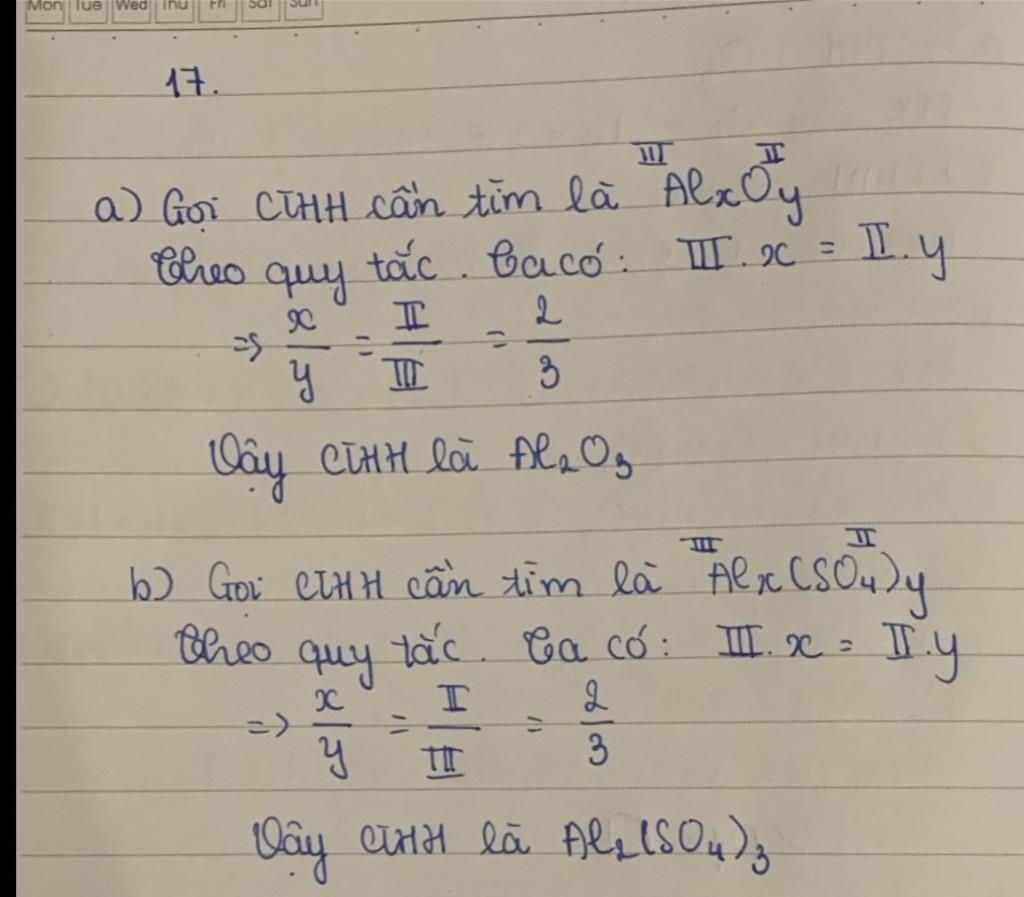 Mon Tue Wed Thu Fri Sat Sun
17.
a) Gọi CTHH cần tìm là AlxOy (III, II)
Theo quy tắc. Ta có: III.x = II.y
=> x/y = II/III = 2/3
Vậy CTHH là Al₂O₃
b) Gọi CTHH cần tìm là Alx(SO₄)y (III, II)
Theo quy tắc. Ta có: III.x = II.y
=> x/y = II/III = 2/3
Vậy CTHH là Al₂(SO₄)₃